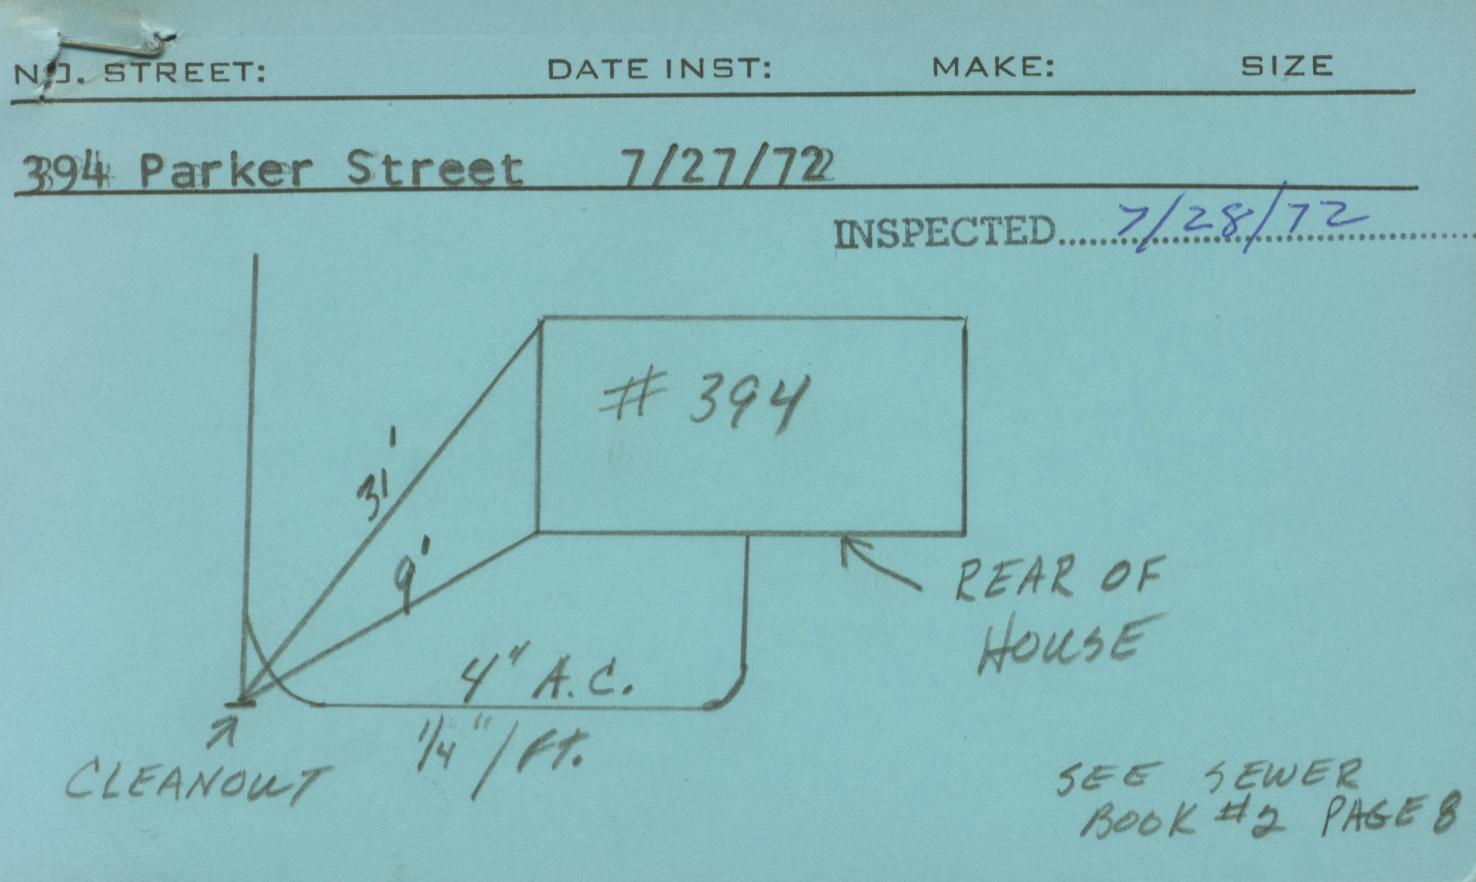 NO. STREET: DATE INST: MAKE: SIZE
394 Parker Street 7/27/72
INSPECTED 7/28/72
# 394
31'
9'
REAR OF
HOUSE
4" A.C.
1/4"/Ft.
CLEANOUT
SEE SEWER
BOOK #2 PAGE 8